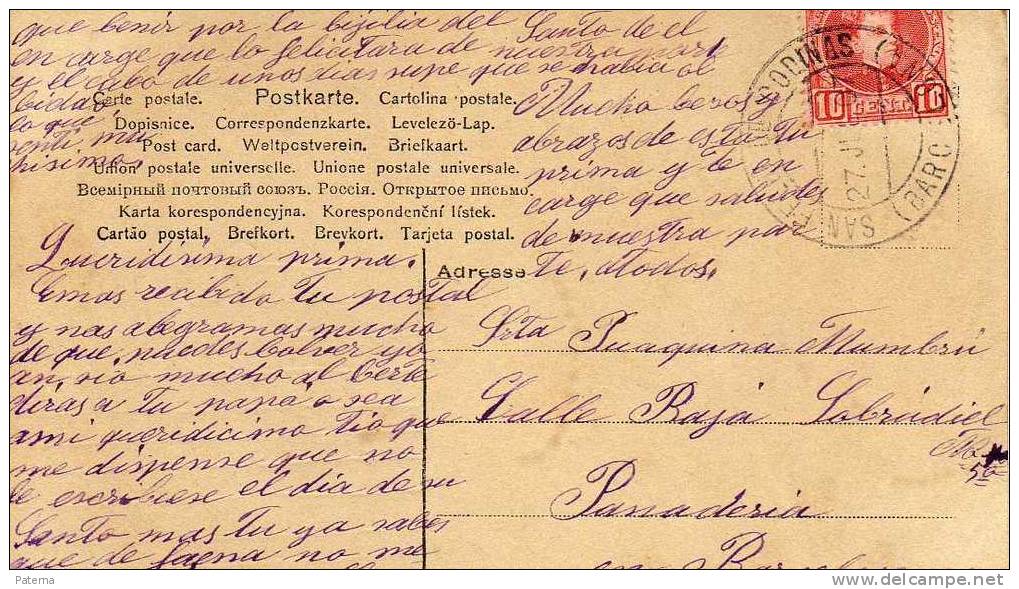 que benir por la bijilia del Santo de el
en carge que lo felicitara de nuestra part
y el cabo de unos dias supe que se habia ol
bidado
lo que
senti mu
chisimo
Carte postale. Postkarte. Cartolina postale.
Dopisnice. Correspondenzkarte. Levelező-Lap.
Post card. Weltpostverein. Briefkaart.
Union postale universelle. Unione postale universale.
Всемірный почтовый союзъ. Россія. Открытое письмо.
Karta korespondencyjna. Korespondenční lístek.
Cartão postal. Brefkort. Brevkort. Tarjeta postal.
Mucho besos y
abrazos de esta tu
prima y te en
carge que saludes
de nuestra par
te, atodos.
10 CENT. 10
27 JU
SAN
(BARC
Adresse
Queridisima prima.
Emos recibido tu postal
y nas alegramas mucho
de que puedes bolver ya
mucho al berte
diras a tu papa o sea
ami queridicimo Tio que
me dispense que no
le escribiese el dia de su
Santo mas tu ya sabes
que de faena no me
Srta Juaquina Mumbrú
Calle Baja Sobrádiel
Panaderia
Barcelona
Paterna
www.delcampe.net